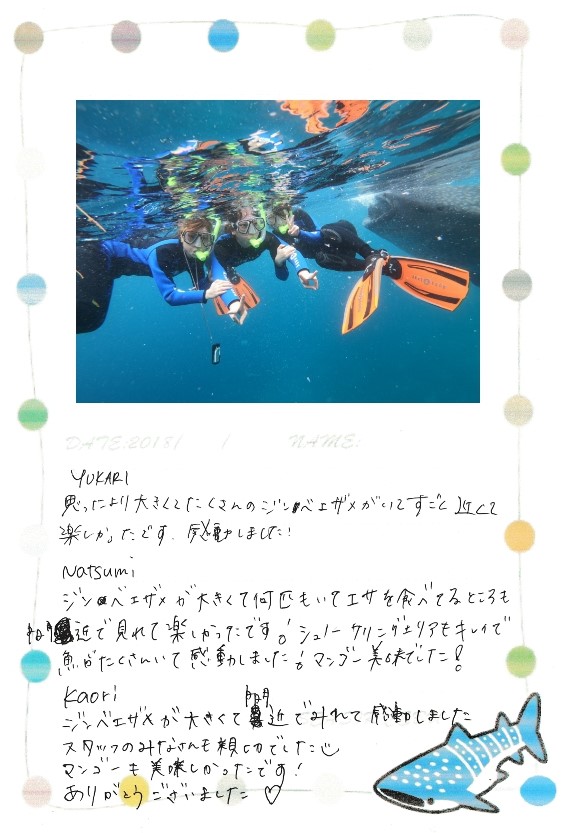 DATE:2013/ / NAME:
YUKARI
思ったより大きくてたくさんのジンベエザメがいてすごく近くて
楽しかったです。感動しました!
Natsumi
ジンベエザメが大きくて何匹もいてエサを食べてるところも
間近で見れて楽しかったです! シュノーケリングエリアもキレイで
魚がたくさんいて感動しました! マンゴー美味でした!
Kaori
ジンベエザメが大きくて間近でみれて感動しました
スタッフのみなさんも親切でした
マンゴーも美味しかったです!
ありがとうございました♡